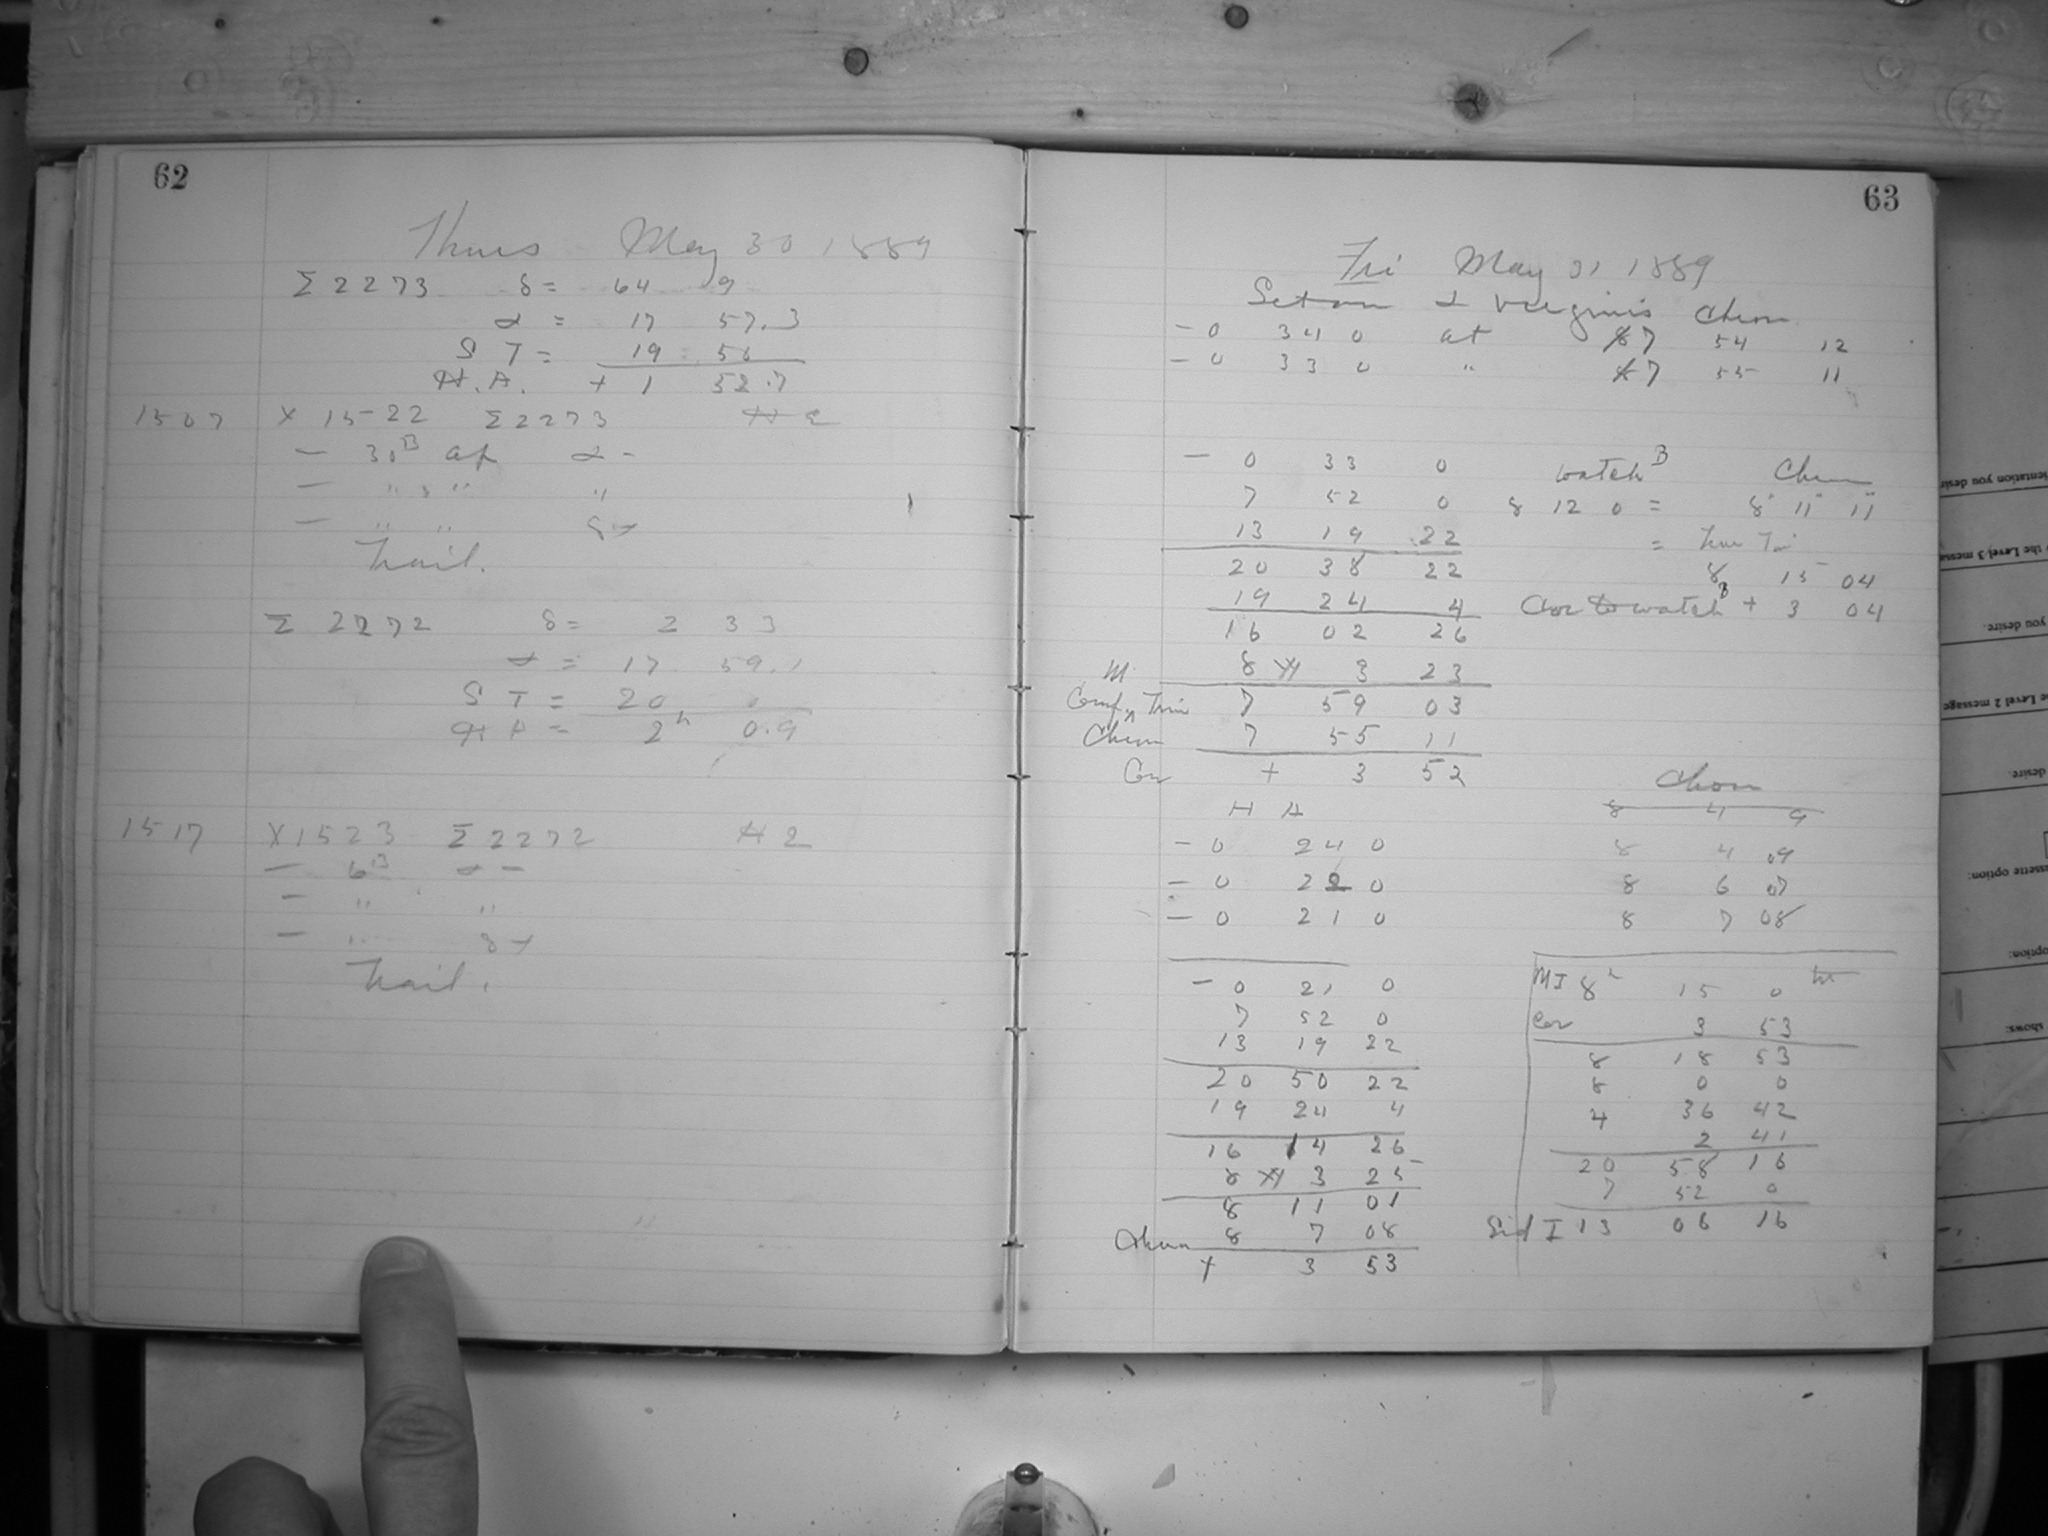 62
Thurs May 30 1889
Σ 2273 δ = 64 9
α = 17 57.3
S T = 19 50
H.A. + 1 52.7
1507 X 15-22 Σ 2273 H 2
— 30 B at α -
— " " "
— " " δ +
Trail.
Σ 2272 δ = 2 33
α = 17 59.1
S T = 20 0
H A = 2h 0.9
1517 X 1523 Σ 2272 H 2
— 6 B α -
— " "
— " δ +
Trail.
63
Fri May 31 1889
Set on α Virginis Chron
- 0 34 0 at 7 54 12
- 0 33 0 " 7 55 11
- 0 33 0 watch B Chron
7 52 0 8 12 0 = 8 11 11
13 19 22 = True Tim
20 38 22 8 15 04
19 24 4 Cor to watch B + 3 04
16 02 26
M 8 XI 3 23
Comp. Tim 7 59 03
Chron 7 55 11
Cor + 3 52 Chron
H A 8 4 9
- 0 24 0 8 4 09
- 0 22 0 8 6 07
- 0 21 0 8 7 08
- 0 21 0 MI 8h 15 0
7 52 0 Cor 3 53
13 19 22 8 18 53
20 50 22 8 0 0
19 24 4 4 36 42
16 14 26 2 41
8 XI 3 25 20 58 16
8 11 01 7 52 0
Chron 8 7 08 Sid I 13 06 16
+ 3 53